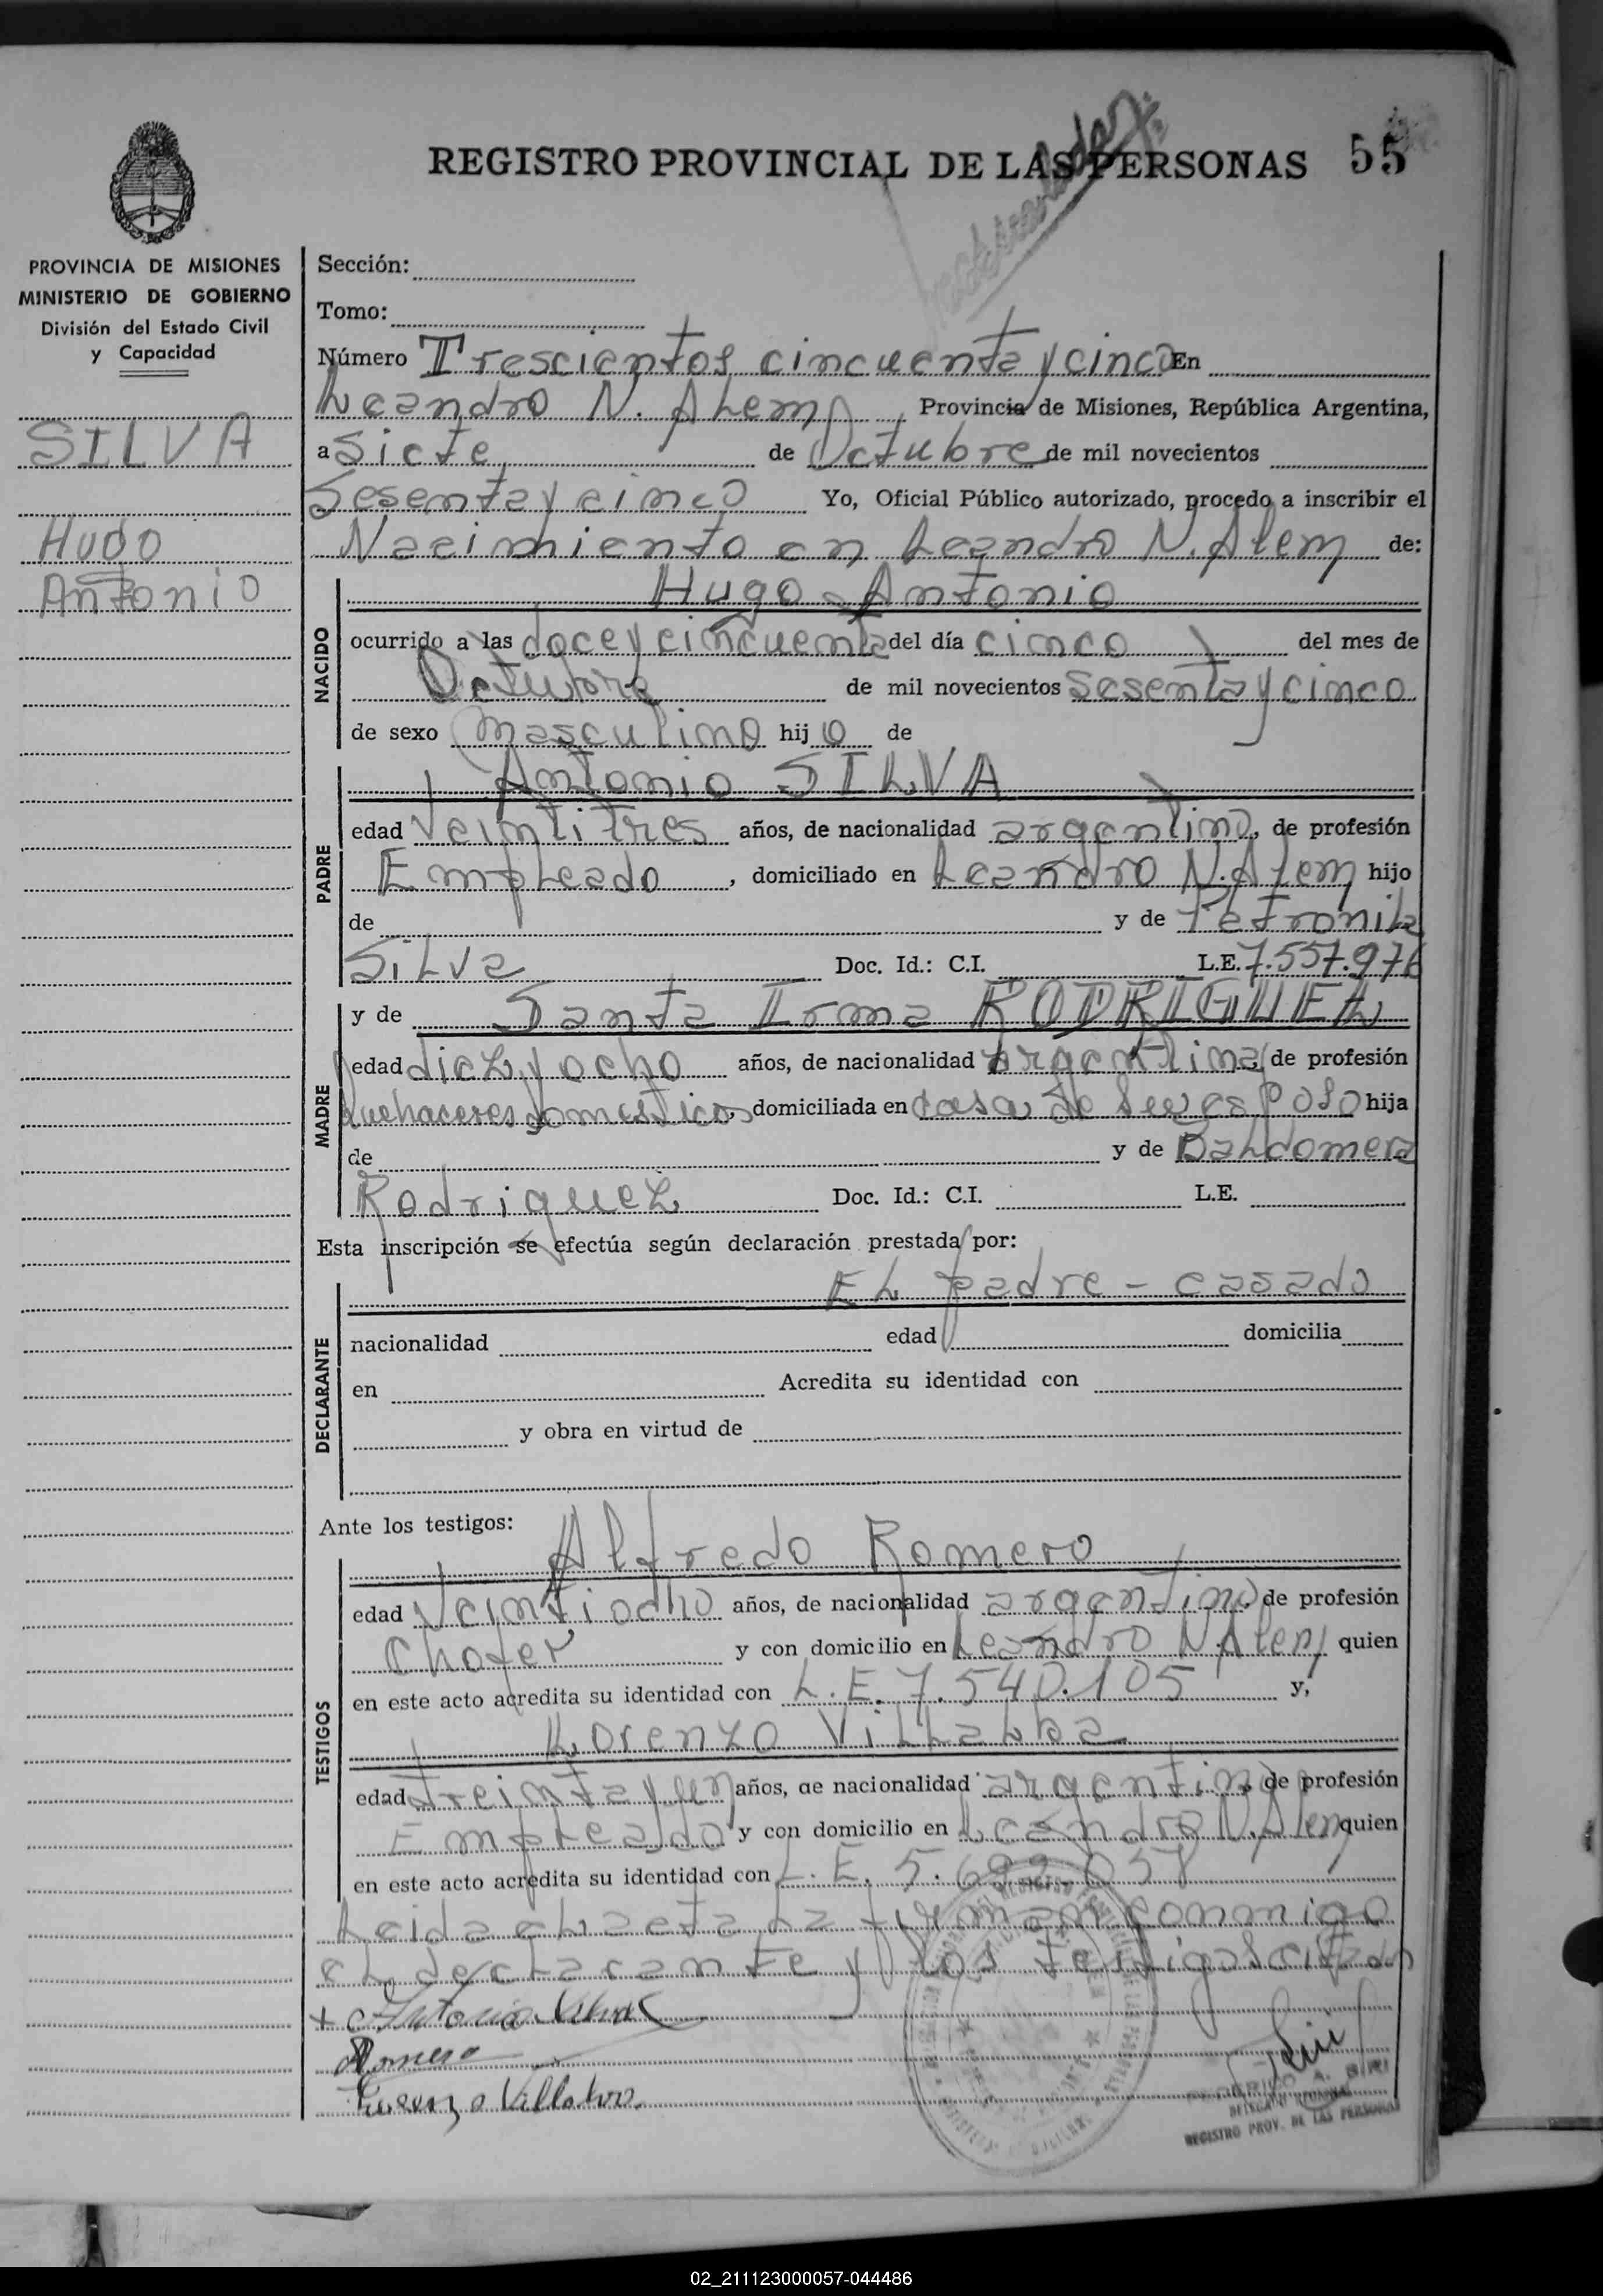 REGISTRO PROVINCIAL DE LAS PERSONAS 55
PROVINCIA DE MISIONES
MINISTERIO DE GOBIERNO
División del Estado Civil
y Capacidad
SILVA
Hugo
Antonio
Sección:
Tomo:
Número Trescientos cincuenta y cinco En
Leandro N. Alem, Provincia de Misiones, República Argentina,
a siete de Octubre de mil novecientos
Sesenta y cinco Yo, Oficial Público autorizado, procedo a inscribir el
Nacimiento en Leandro N. Alem de:
NACIDO
Hugo Antonio
ocurrido a las doce y cincuenta del día cinco del mes de
Octubre de mil novecientos sesenta y cinco
de sexo masculino hijo de
PADRE
Antonio SILVA
edad veintitres años, de nacionalidad argentino, de profesión
Empleado, domiciliado en Leandro N. Alem hijo
de y de Petronila
Silva Doc. Id.: C.I. L.E. 7.557.976
MADRE
y de Santa Irma RODRIGUEZ
edad diez y ocho años, de nacionalidad argentina, de profesión
Quehaceres domesticos, domiciliada en casa de su esposo hija
de y de Baldomera
Rodriguez Doc. Id.: C.I. L.E.
Esta inscripción se efectúa según declaración prestada por:
DECLARANTE
El padre - casado
nacionalidad edad domicilia
en Acredita su identidad con
y obra en virtud de
Ante los testigos:
TESTIGOS
Alfredo Romero
edad veintiocho años, de nacionalidad argentino, de profesión
Chofer y con domicilio en Leandro N. Alem quien
en este acto acredita su identidad con L.E. 7.540.105 y,
Lorenzo Villalba
edad treinta y un años, de nacionalidad argentino, de profesión
Empleado y con domicilio en Leandro N. Alem quien
en este acto acredita su identidad con L.E. 5.699.057
Leida el acta la firman conmigo
el declarante y los testigos citados
+ Antonio Silva
Romero
Lorenzo Villalba
DELEGADO
REGISTRO PROV. DE LAS PERSONAS
02_211123000057-044486